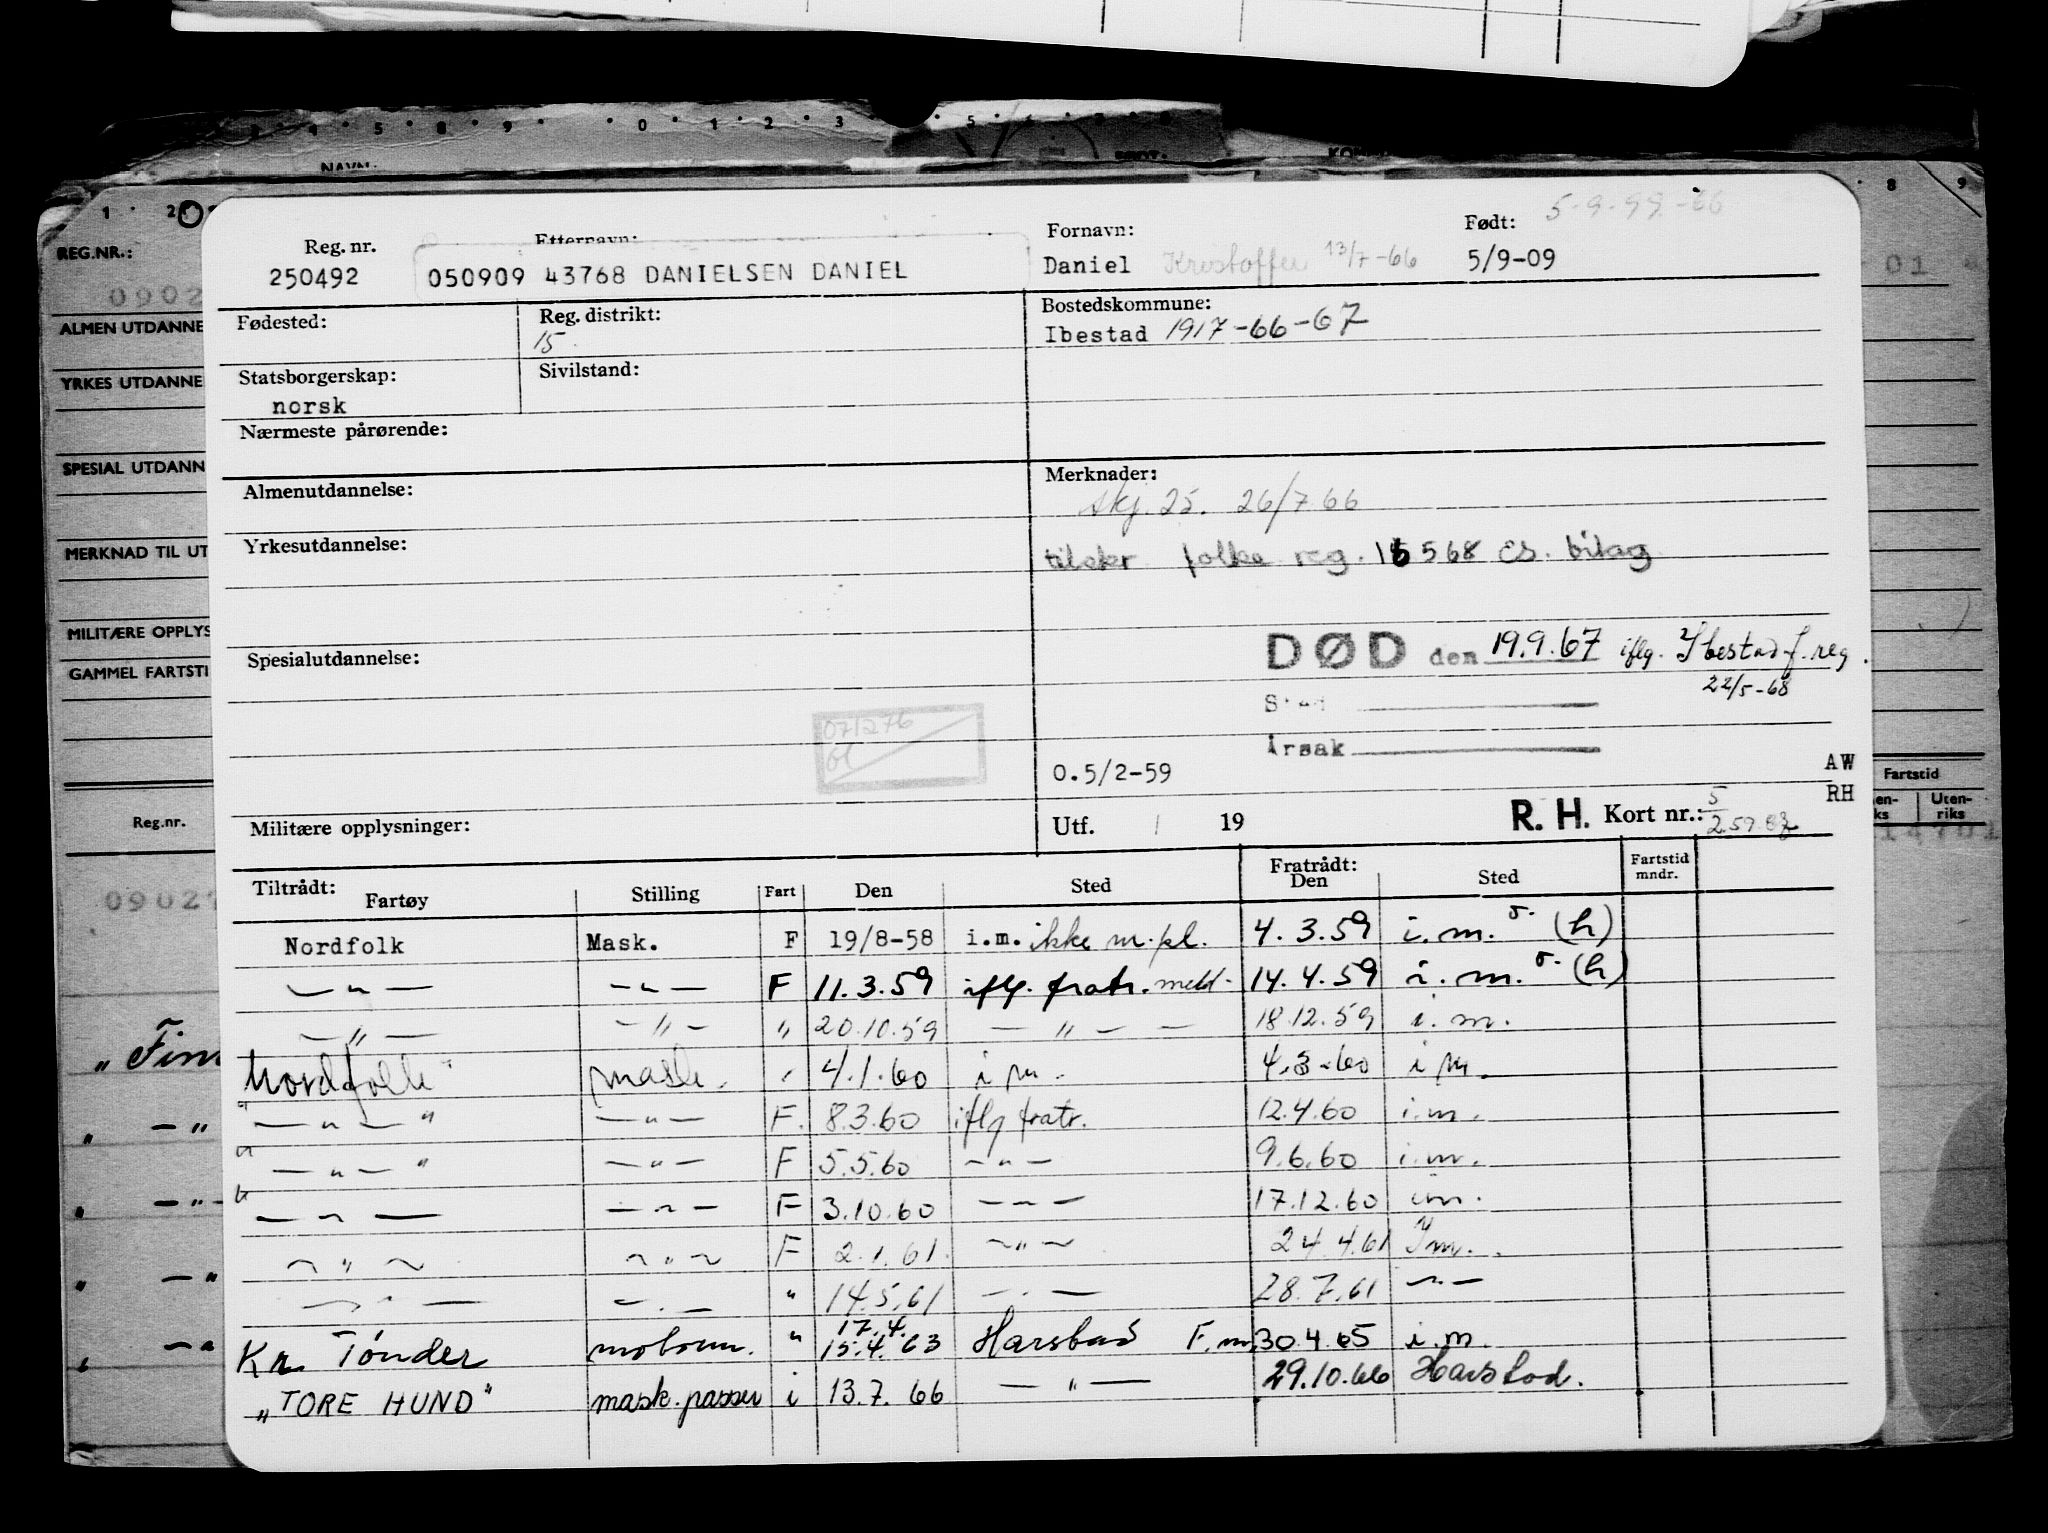 NAVN:
REG.NR.:
0902
ALMEN UTDANNE
YRKES UTDANNE
SPESIAL UTDANN
MERKNAD TIL UT
MILITÆRE OPPLYS
GAMMEL FARTSTI
Reg.nr.
Reg. nr. Etternavn: Fornavn: Født: 5-9-99-66
250492 050909 43768 DANIELSEN DANIEL Daniel Kristoffer 13/7-66 5/9-09
Fødested: Reg. distrikt: 15 Bostedskommune:
Ibestad 1917-66-67
Statsborgerskap: Sivilstand:
norsk
Nærmeste pårørende:
Almenutdannelse: Merknader:
skj. 25. 26/7 66
Yrkesutdannelse: folke reg. 568 bilag
Spesialutdannelse: DØD den 19.9.67 iflg. Ibestad f. reg.
22/5-68
Sted
071276
Årsak
0.5/2-59 AW
RH
Militære opplysninger: Utf. / 19 R. H. Kort nr.: 5
Fartstid
Uten-
riks
Tiltrådt: Fartøy Stilling Fart Den Sted Fratrådt: Den Sted Fartstid mndr.
Nordfolk Mask. F 19/8-58 i.m. ikke m.pl. 4.3.59 i.m. (h)
—"— —"— F 11.3.59 iflg. fratr. meld. 14.4.59 i.m. (h)
—"— —"— " 20.10.59 —"— 18.12.59 i.m.
Nordfolk" mask. 4.1.60 i m. 4.3-60 i m.
"—"—" —"— F. 8.3.60 iflg fratr. 12.4.60 i.m.
"—"—" —"— F 5.5.60 —"— 9.6.60 i.m.
"—"— —"— F 3.10.60 —"— 17.12.60 im.
—"— —"— F 2.1.61. —"— 24.4.61 Im.
—"— —"— " 14.5.61 —"— 28.7.61 —"—
17.4.
Kr. Tønder motorm. " 15.4.63 Harstad F.m. 30.4.65 i.m.
"TORE HUND" mask.passer i 13.7.66 —"— 29.10.66 Harstad.